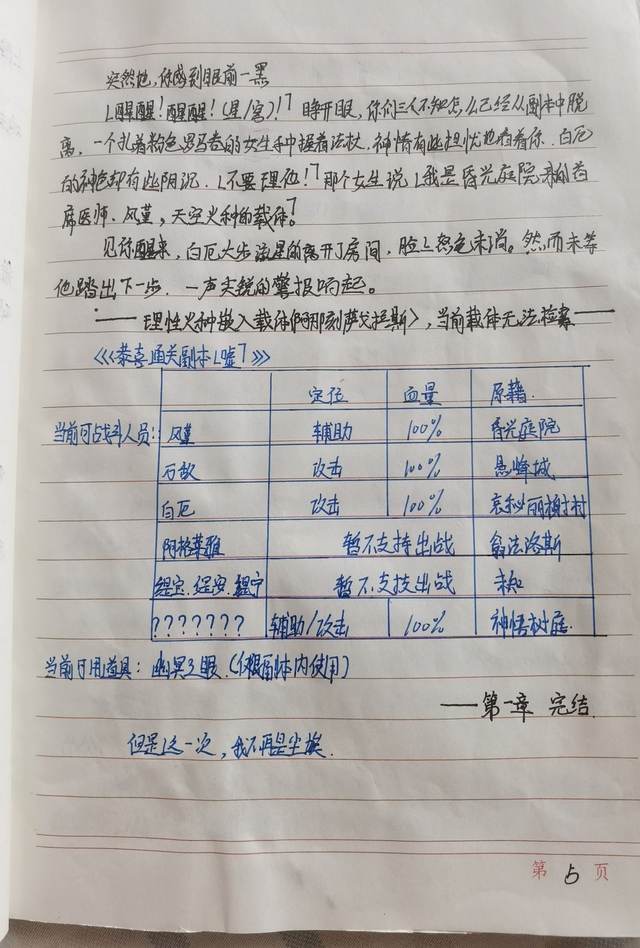 突然地，你感到眼前一黑
「醒醒！醒醒！(星/穹)！」睁开眼，你们三人不知怎么已经从副本中脱
离，一个扎着粉色罗马卷的女生手中握着法杖，神情有些担忧地看着你．白厄
的神色却有些阴沉．「不要理他！」那个女生说「我是昏光庭院的首
席医师．风堇，天空火种的载体！」
见你醒来，白厄大步流星的离开了房间，脸上怒色未消。然而未等
他踏出下一步．一声尖锐的警报响起。
——理性火种嵌入载体〈阿那刻萨戈拉斯〉，当前载体无法检索——
《《《恭喜通关副本「嘘」》》》
定位 血量 原籍
当前可战斗人员：风堇 辅助 100% 昏光庭院
万敌 攻击 100% 悬峰城
白厄 攻击 100% 哀丽榭村
阿格莱雅 暂不支持出战 翁法洛斯
缇宝．缇安．缇宁 暂不支持出战 未知
??????? 辅助/攻击 100% 神悟树庭
当前可用道具：幽冥之眼．(仅限副本内使用)
——第一章 完结．
但是这一次，我不再是尘埃．
第 5 页